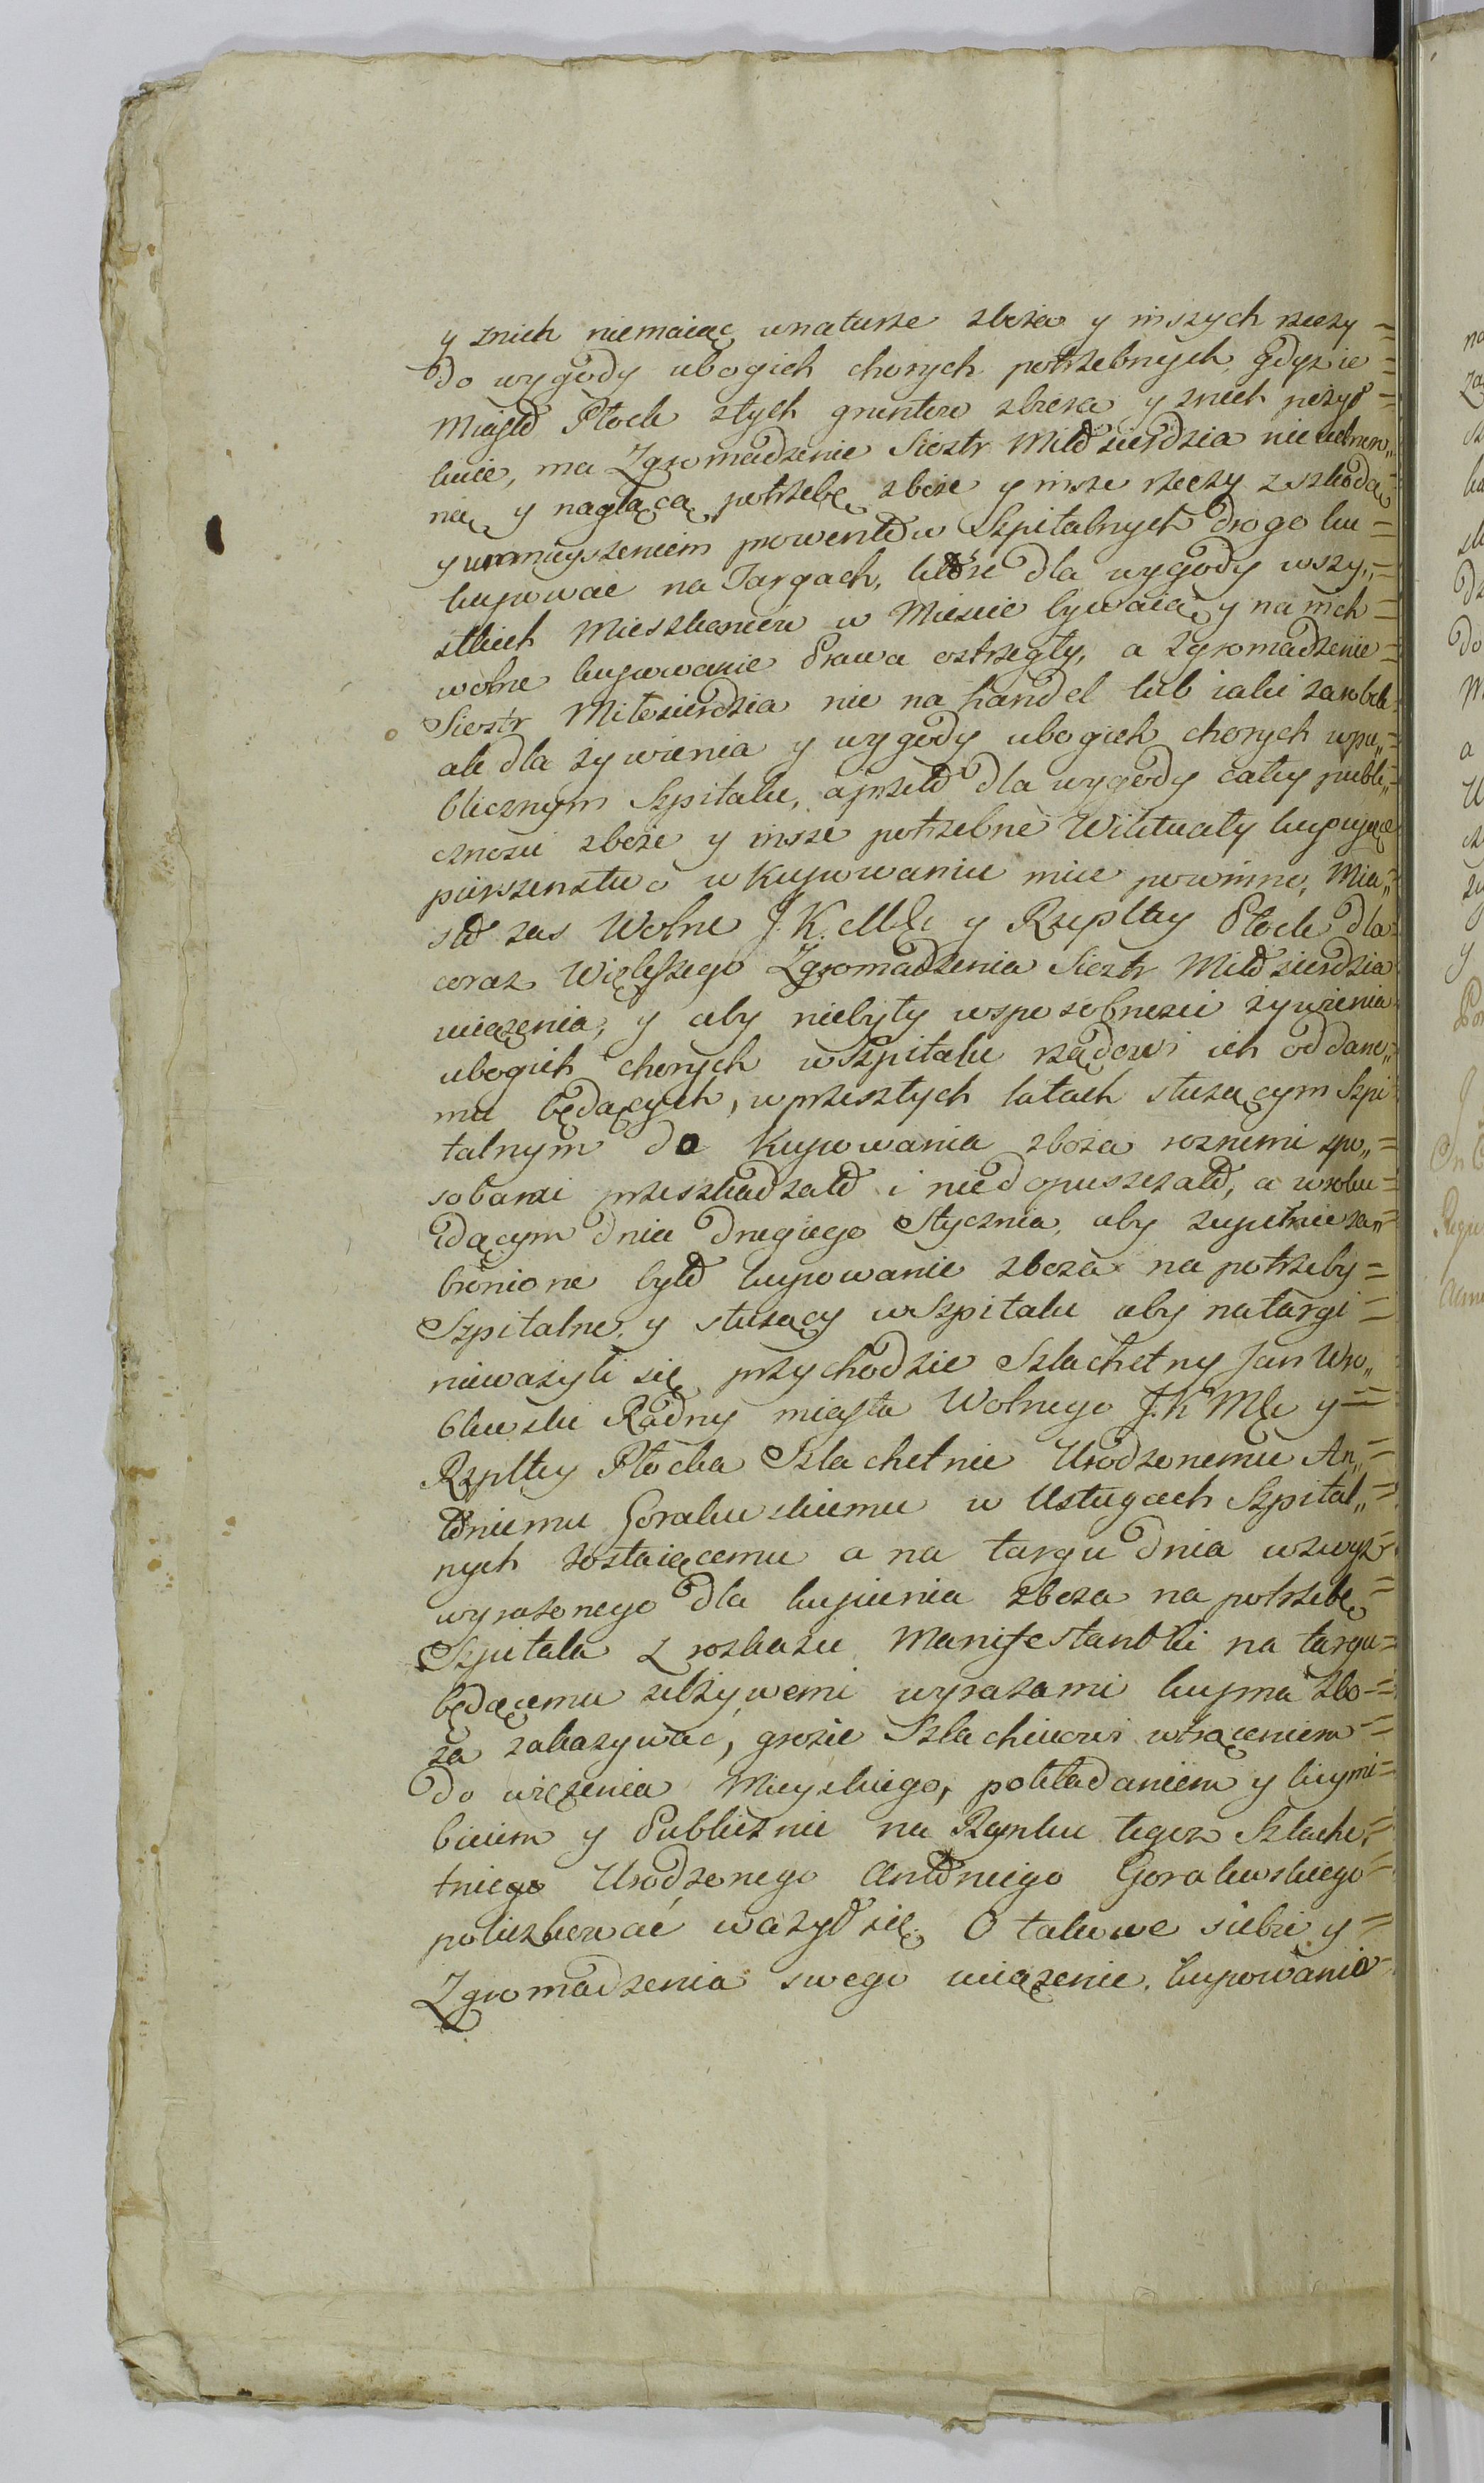 y znich niemaiąc wnaturze zboża y inszych rzeczy =
do wygody ubogich chorych potrzebnych, gdyż ie =
Miasto Płock ztych gruntow zbiera y znich pożyt =
kuie, ma Zgromadzenie Siostr Miłosierdzia nieuchron„
ną y naglącą potrzebę zboże y insze rzeczy z szkodą
y umnieyszeniem prowentow Szpitalnych drogo ku =
kupować na Targach, ktore dla wygody wszy„=
stkich Mieszkancow w Miescie bywaią y na nich =
wolne kupowanie Prawa ostrzegły, a Zgromadzenie =
Siostr Miłosierdzia nie na handel lub iaki zarobek
ale dla żywienia y wygody ubogich chorych wpu„=
blicznym Szpitalu, a przeto dla wygody całey publi„=
cznosci zboże y insze potrzebne Wiktuały kupuiąc
pierszenstwo w kupowaniu miec powinno, Mia„
sto zas Wolne J. K. Mći y Rzepltey Płock dla
coraz Większego Zgromadzenia Siostr Miłosierdzia
uciążenia, y aby niebyły wsposobnosci żywienia
ubogich chorych wSzpitalu rządowi ich oddane„
mu będących, w przeszłych latach służącym Szpi
talnym do kupowania zboża roznemi spo„=
sobami przeszkadzało i niedopuszczało, a wroku =
idącym dnia drugiego Stycznia, aby zupełnie za=
bronione było kupowanie zboża na potrzeby =
Szpitalne, y służący wSzpitalu aby na targi =
nieważyli się przychodzic Szlachetny Jan Wro„
blewski Radny miasta Wolnego J. K Mći y =
Rzpltey Płocka Szlachetnie Urodzonemu An„=
toniemu Goralewskiemu w Usługach Szpital„=
nych zostaiącemu a na targu dnia wzwyż
wyrażonego dla kupienia zboża na potrzebę =
Szpitala z rozkazu Manifestantki na targu =
będącemu zelżywemi wyrazami kupna zbo =
ża zakazywać, grozic Szlachcicowi wtrąceniem =
do więzienia Mieyskiego, pokładaniem y kiymi =
biciem y Publicznie na Rynku tegoz Szlache„=
tniego Urodzonego Antoniego Goralewskiego =
policzkować ważył się. O takowe siebie y =
Zgromadzenia swego uciążenie, kupowania